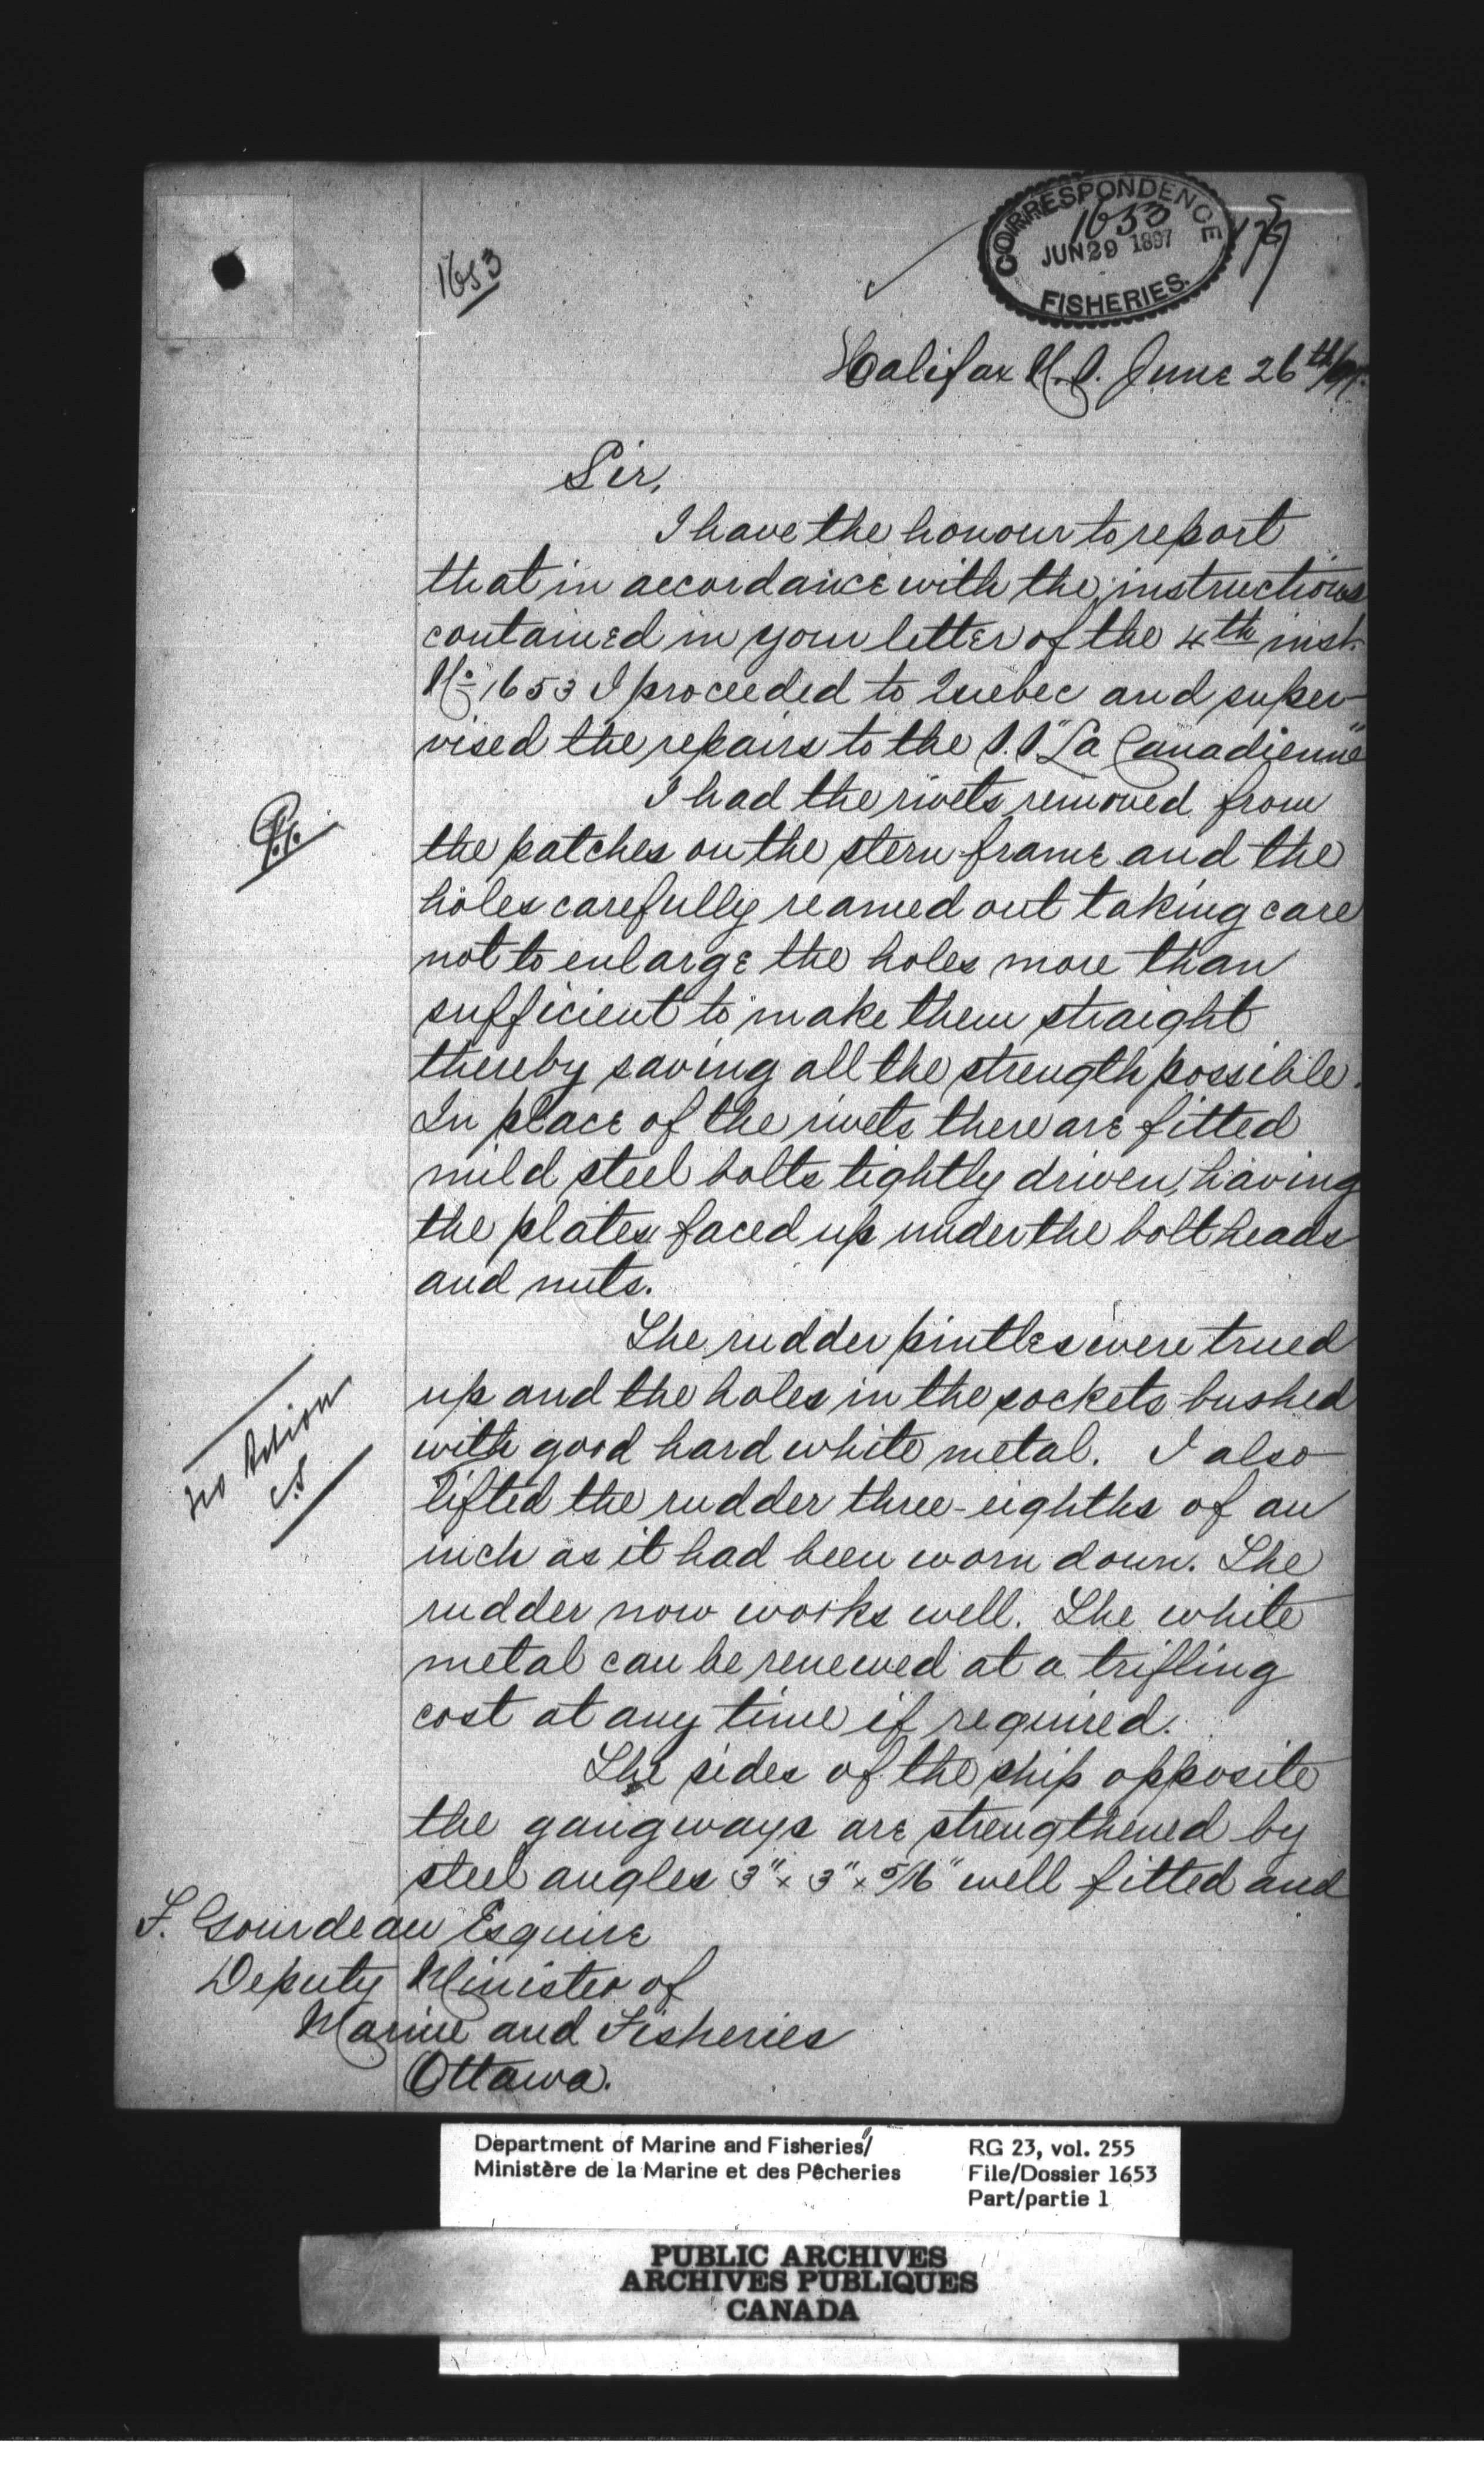 CORRESPONDENCE
1653
JUN 29 1897
FISHERIES.
1653
Halifax N.S. June 26th/97.
Sir,
I have the honour to report
that in accordance with the instructions
contained in your letter of the 4th inst.
No 1653 I proceeded to Quebec and super-
vised the repairs to the S.S "La Canadienne"
I had the rivets removed from
the patches on the stern frame and the
holes carefully reamed out taking care
not to enlarge the holes more than
sufficient to make them straight
thereby saving all the strength possible.
In place of the rivets there are fitted
mild steel bolts tightly driven, having
the plates faced up under the bolt heads
and nuts.
The rudder pintles were trued
up and the holes in the sockets bushed
with good hard white metal. I also
lifted the rudder three-eighths of an
inch as it had been worn down. The
rudder now works well. The white
metal can be renewed at a trifling
cost at any time if required.
The sides of the ship opposite
the gangways are strengthened by
steel angles 3" x 3" x 5/16" well fitted and
no Action
F. Gourdeau Esquire
Deputy Minister of
Marine and Fisheries
Ottawa.
Department of Marine and Fisheries/
Ministère de la Marine et des Pêcheries
RG 23, vol. 255
File/Dossier 1653
Part/partie 1
PUBLIC ARCHIVES
ARCHIVES PUBLIQUES
CANADA